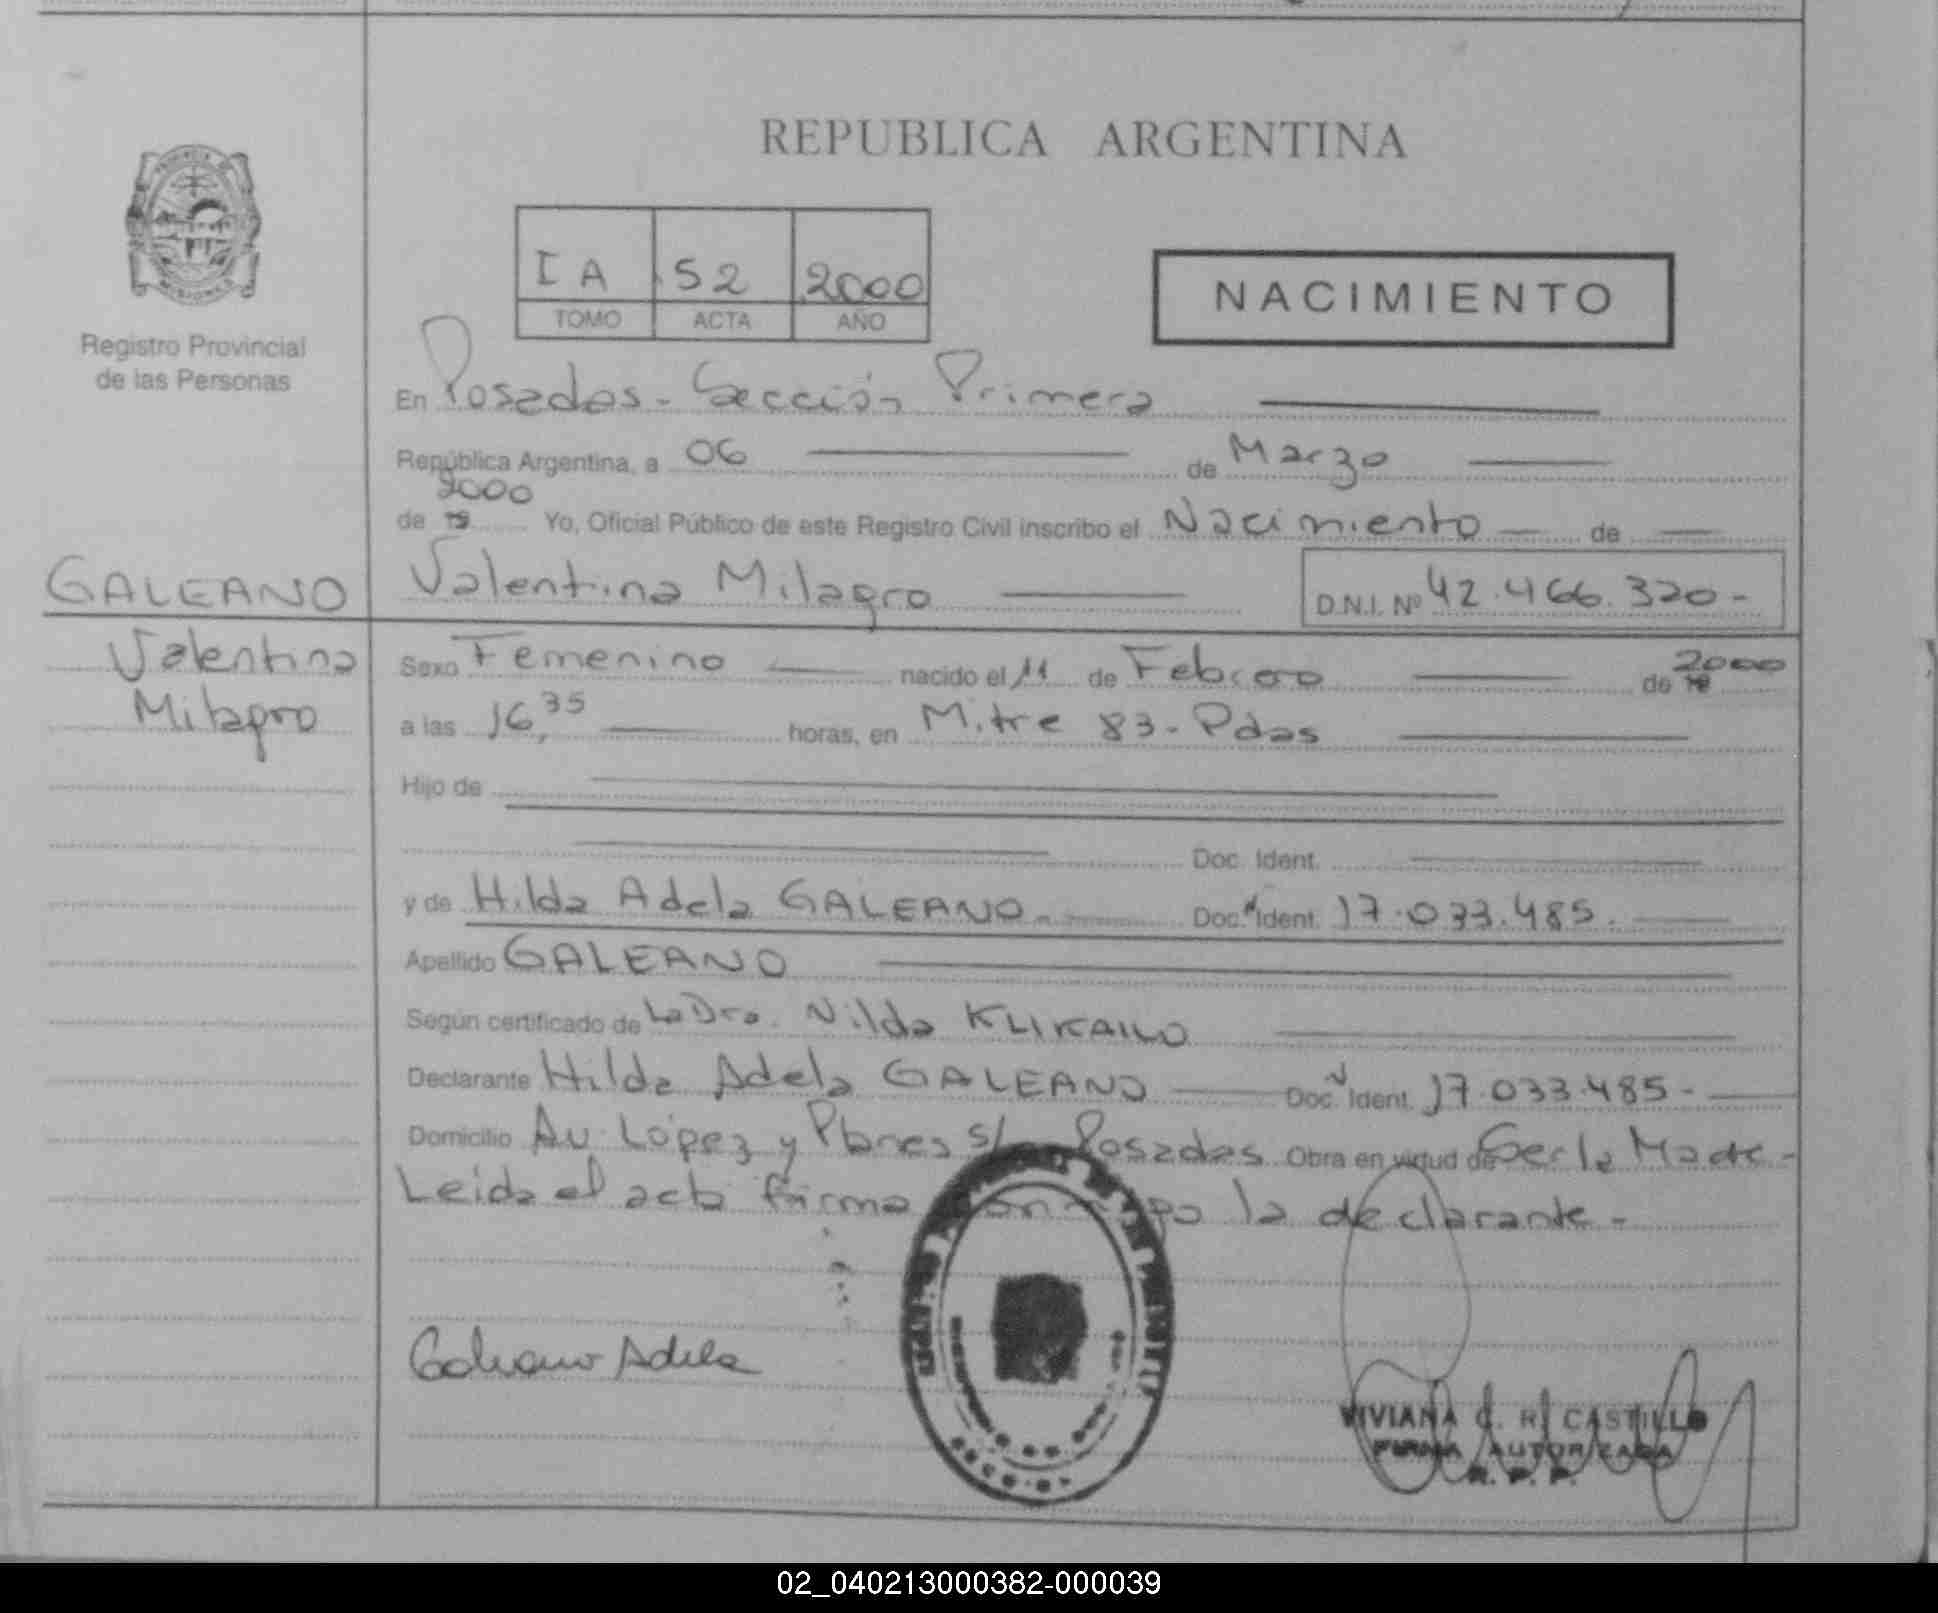 REPUBLICA ARGENTINA
I A 52 2000
TOMO ACTA AÑO
NACIMIENTO
MISIONES
Registro Provincial
de las Personas
En Posadas - Sección Primera
República Argentina, a 06 de Marzo
2000
de 19 Yo, Oficial Público de este Registro Civil inscribo el Nacimiento de
GALEANO Valentina Milagro D.N.I. Nº 42.466.320-
Valentina
Milagro
Sexo Femenino nacido el 11 de Febrero de 19 2000
a las 16,35 horas, en Mitre 83 - Pdas
Hijo de
Doc. Ident.
y de Hilda Adela GALEANO Doc. N Ident. 17.033.485.
Apellido GALEANO
Según certificado de La Dra. Nilda
Declarante Hilda Adela GALEANO Doc. N Ident. 17.033.485-
Domicilio Av. López y Planes s/ Posadas Obra en virtud de Ser la Madre-
Leida el acta firma la declarante-
Galeano Adela
VIVIANA C. R. CASTILLO
FIRMA AUTORIZADA
R. P. P.
02_040213000382-000039